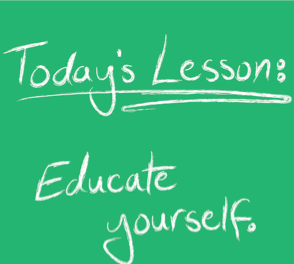 Today's Lesson:
Educate
yourself.